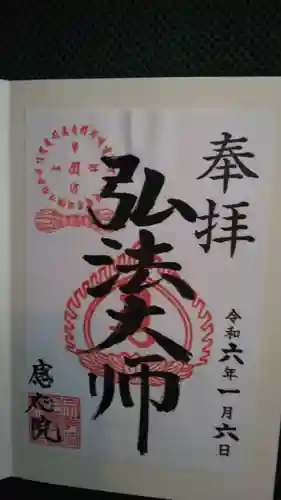 奉拝
令和六年一月六日
弘法大師
感応院